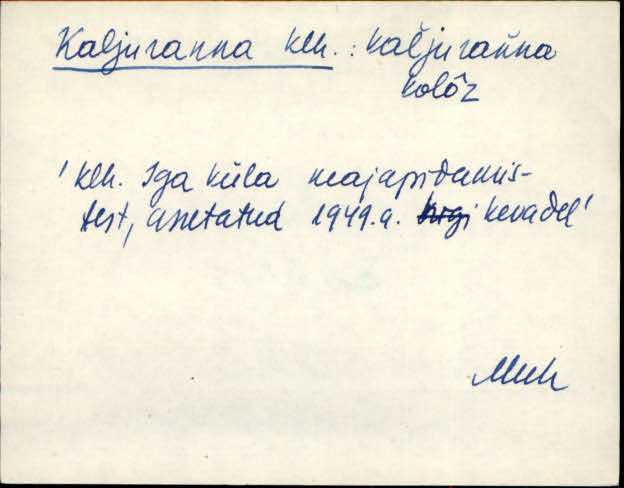 Kaljuranna klh.: kal̆juran̆na
kolôz
'klh. Iga küla majapidamis-
test, asutatud 1949.a. kevadel'
Muh